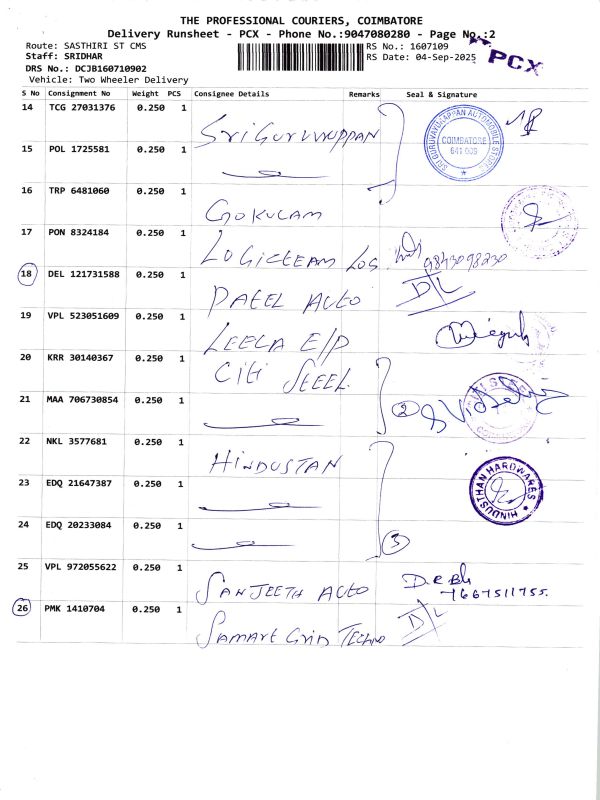 THE PROFESSIONAL COURIERS, COIMBATORE
Delivery Runsheet - PCX - Phone No.:9047080280 - Page No.:2
Route: SASTHIRI ST CMS
RS No.: 1607109
Staff: SRIDHAR
RS Date: 04-Sep-2025
PCX
DRS No.: DCJB160710902
Vehicle: Two Wheeler Delivery
S No Consignment No Weight PCS Consignee Details Remarks Seal & Signature
14 TCG 27031376 0.250 1 SRI GURUVUPPAN
SRI GURUVAYURAPPAN AUTOMOBILE STORES COIMBATORE 641 009
15 POL 1725581 0.250 1
16 TRP 6481060 0.250 1 GOKULAM
17 PON 8324184 0.250 1 LOGICTEAM LOG 9843098230
18 DEL 121731588 0.250 1 PATEL AUTO D/L
19 VPL 523051609 0.250 1 LEELA E/P
20 KRR 30140367 0.250 1 CITI STEEL
21 MAA 706730854 0.250 1 2
22 NKL 3577681 0.250 1 HINDUSTAN
HINDUSTHAN HARDWARES
23 EDQ 21647387 0.250 1
24 EDQ 20233084 0.250 1 3
25 VPL 972055622 0.250 1 SANJEETH AUTO 7667511755
26 PMK 1410704 0.250 1 SAMART GRID TECHNO D/L